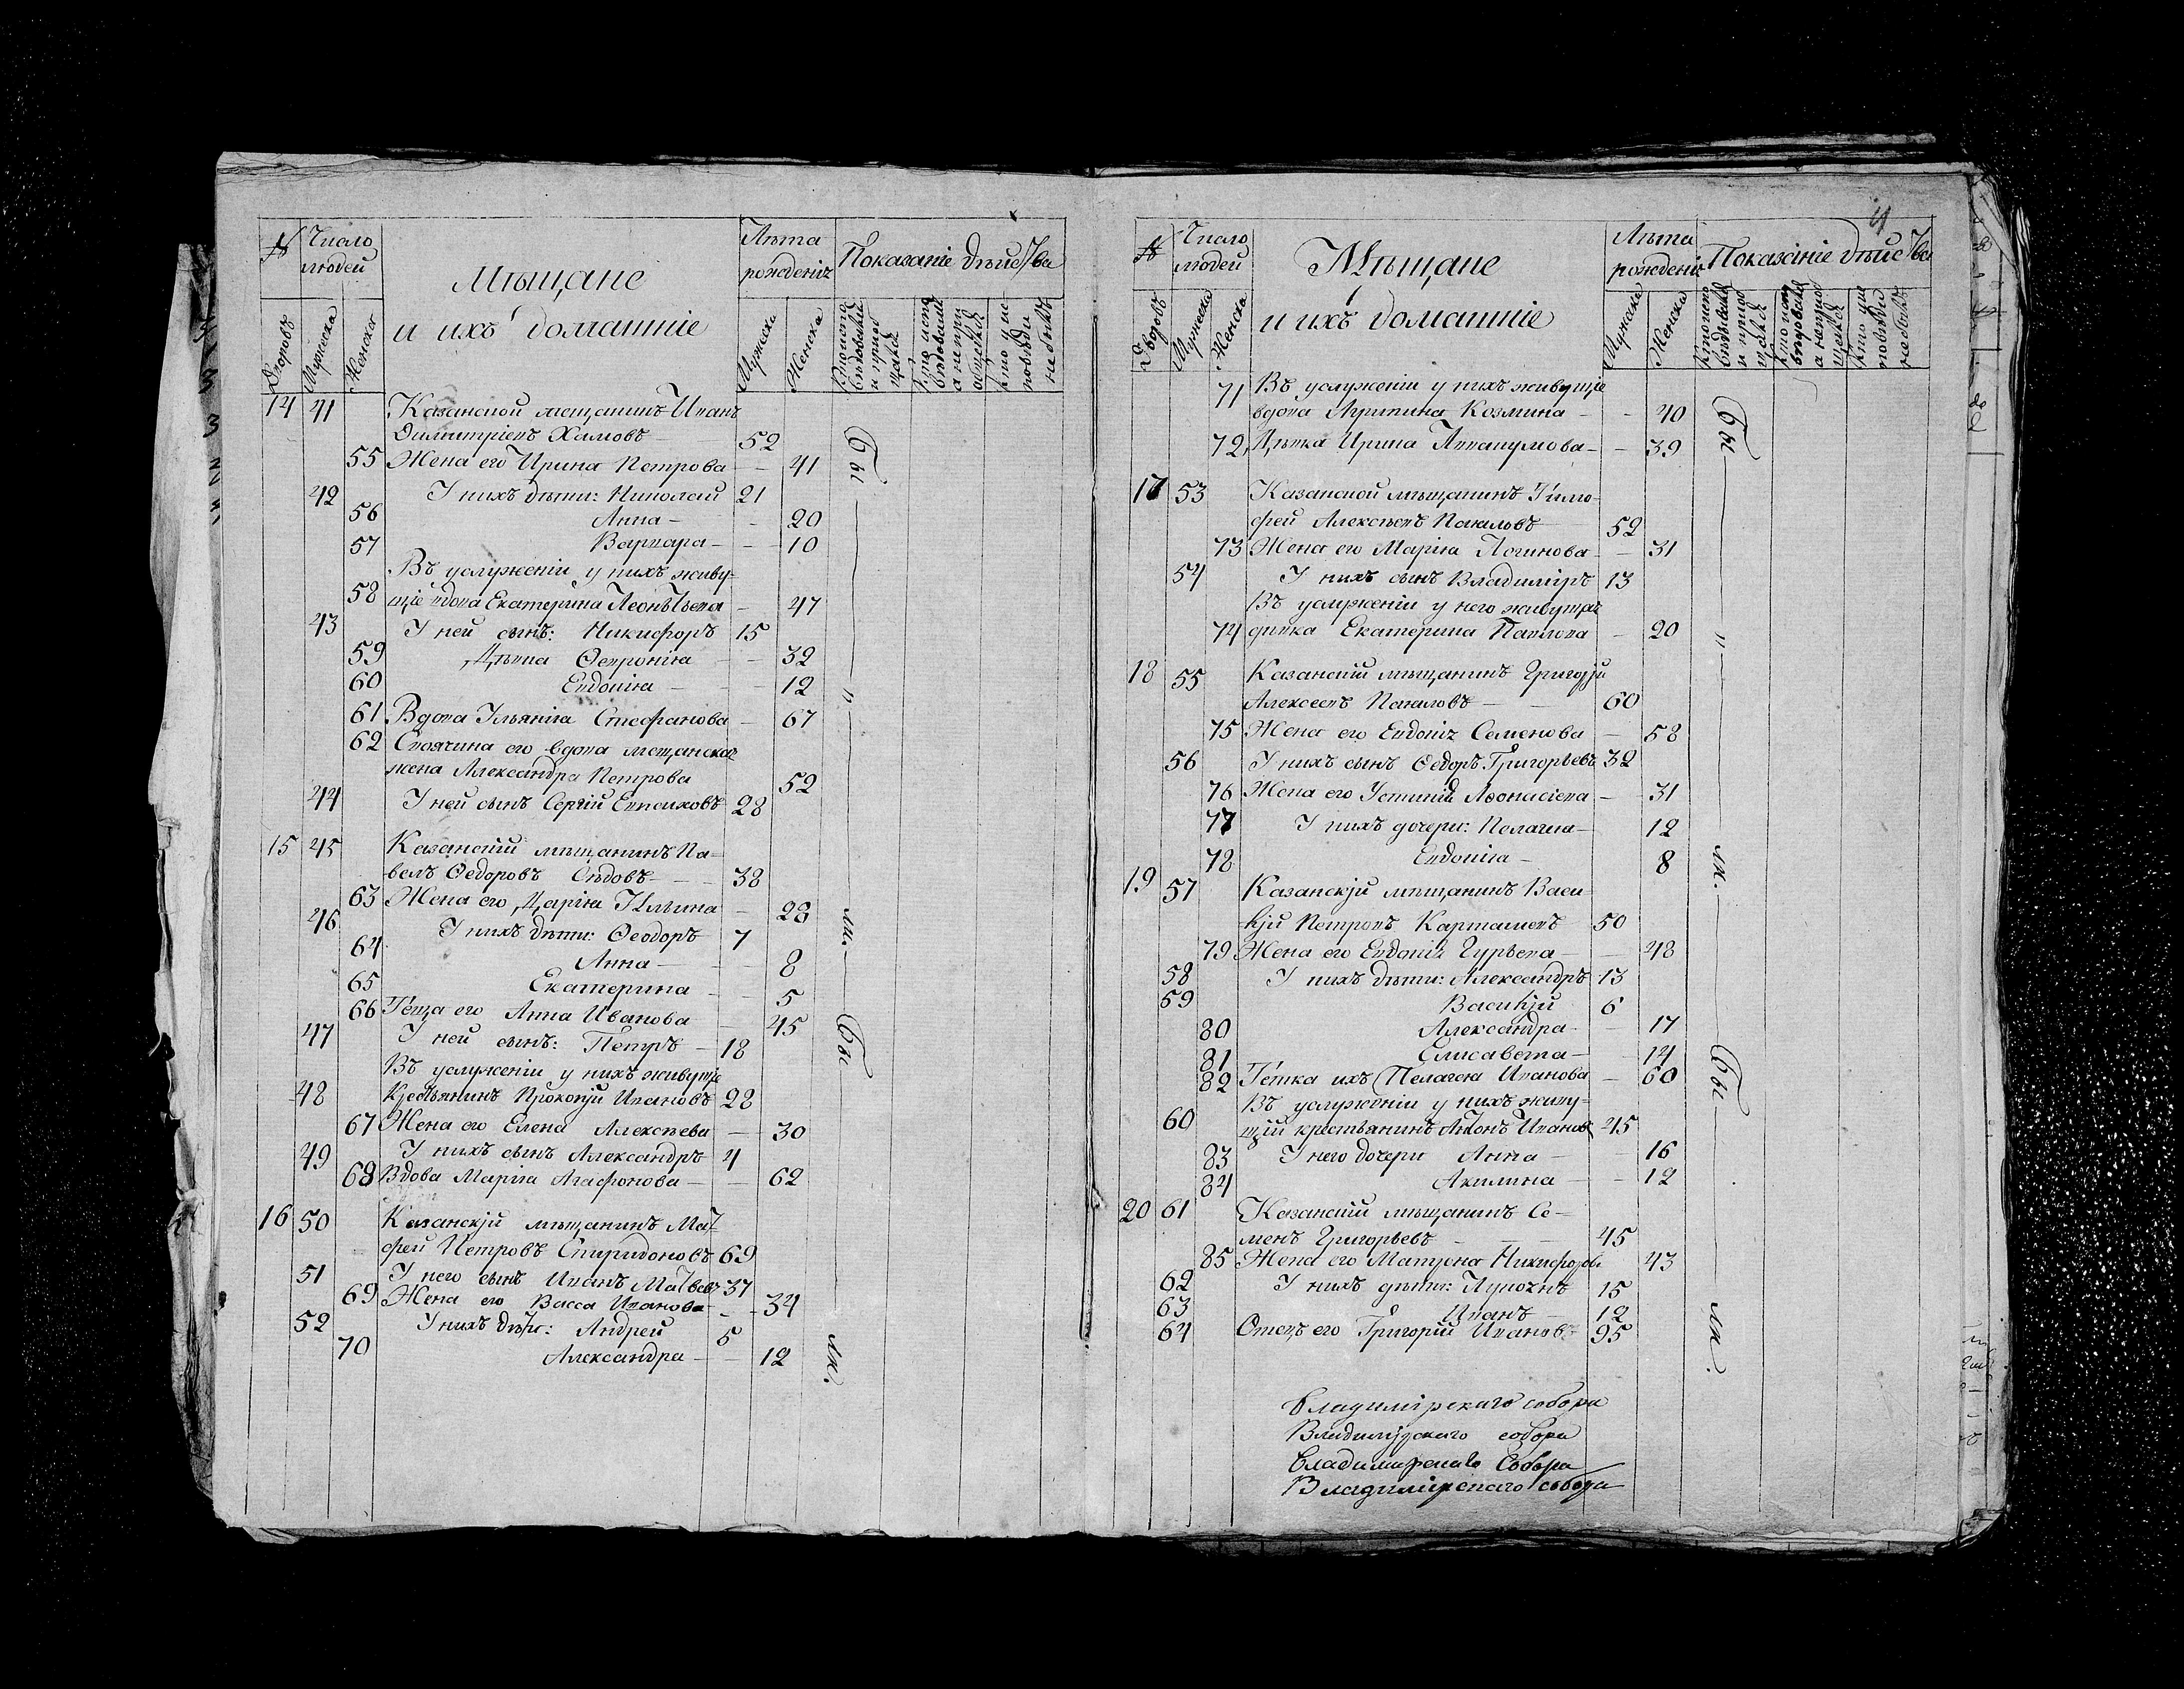 № Число людей
Мѣщане
и ихъ домашніе
Лѣта рожденія
Показаніе дѣйства
Дворовъ Мужеска Женска
Мужеска Женска
14 41 Казанской мещанинъ Иванъ
Димитріевъ Хамовъ — 52
55 Жена его Ирина Петрова — 41
42 У нихъ дѣти: Николай 21
56 Анна — — 20
57 Варвара — — 10
Въ услуженіи у нихъ живу-
58 щіе вдова Екатерина Леонтьева — 47
43 У ней сынъ: Никифоръ 15
59 Дѣвка Февронія — — 32
60 Евдокія — — 12
61 Вдова Ульянія Стефанова — 67
62 Своячина его вдова мещанская
жена Александра Петрова 52
44 У ней сынъ Сергій 28
15 45 Казанскій мѣщанинъ Па-
велъ Ѳедоровъ Сѣдовъ — — 38
63 Жена его Дарія Ильина — 28
46 У нихъ дѣти: Ѳеодоръ 7
64 Анна — — 8
65 Екатерина — 5
66 Теща его Анна Иванова — 45
47 У ней сынъ: Петръ — 18
Въ услуженіи у нихъ живутъ
48 Крестьянинъ Прокопій Ивановъ 28
67 Жена его Елена Алексѣева — 30
49 У нихъ сынъ Александръ 4
68 Вдова Марія Агафонова — — 62
16 50 Казанскій мѣщанинъ Мат-
фей Петровъ Спиридоновъ 69
51 У него сынъ Иванъ Матвевъ 37
69 Жена его Васса Иванова — — 34
52 У нихъ дѣти: Андрей 5
70 Александра — — 12
Бы
"
ли.
Бы
ли.
4
№ Число людей
Мѣщане
и ихъ домашніе
Лѣта рожденія
Показаніе дѣйства
Дворовъ Мужеска Женска
Мужеска Женска
71 Въ услуженіи у нихъ живущіе
вдова Агрипина Козмина — — 40
72 Дѣвка Ирина — — 39
17 53 Казанской мѣщанинъ Тимо-
фей Алексѣевъ 52
73 Жена его Марія Логинова — — 31
54 У нихъ сынъ Владиміръ 13
Въ услуженіи у него живутъ
74 дѣвка Екатерина Павлова — 20
18 55 Казанскій мѣщанинъ Григорій
Алексеевъ — — 60
75 Жена его Евдокія Семенова — 58
56 У нихъ сынъ Ѳедоръ Григорьевъ 32
76 Жена его Устинія Аѳонасіева — 31
77 У нихъ дочери: Пелагия — 12
78 Евдокія — 8
19 57 Казанскій мѣщанинъ Васи-
лій Петровъ Карташевъ 50
79 Жена его Евдокія Гурьева — 48
58 У нихъ дѣти: Александръ 13
59 Василій 6
80 Александра — — 17
81 Елисавета — — 14
82 Тётка ихъ Пелагея Иванова — 60
Въ услуженіи у нихъ живу-
60 щій крестьянинъ Антонъ Ивановъ 45
83 У него дочери Анна — — 16
84 Акилина — — 12
20 61 Казанскій мѣщанинъ Се-
менъ Григорьевъ — — — 45
85 Жена его Матрона Никифорова 43
62 У нихъ дѣти: 15
63 Иванъ — 12
64 Отецъ его Григорій Ивановъ 95
Бы
"
ли.
Бы
ли.
Владимірскаго собора
Владимірскаго собора
Владимирскаго Собора
Владимірскаго собора